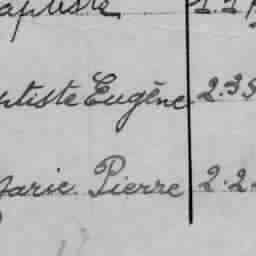 aptiste 2.2
ptiste Eugène 2.35
arie Pierre 2.2